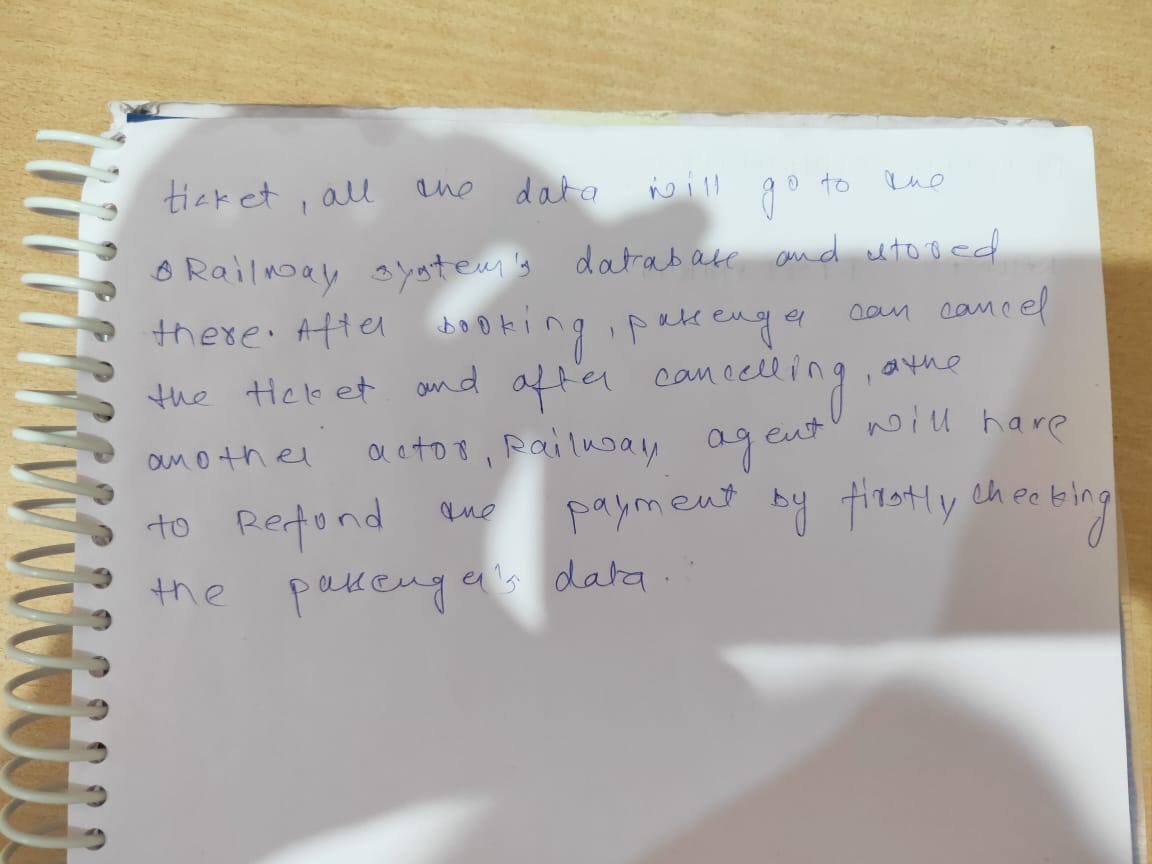 ticket, all the data will go to the
Railway system's database and stored
there. After booking, passenger can cancel
the ticket and after cancelling, the
another actor, Railway agent will have
to Refund the payment by firstly checking
the passenger's data.